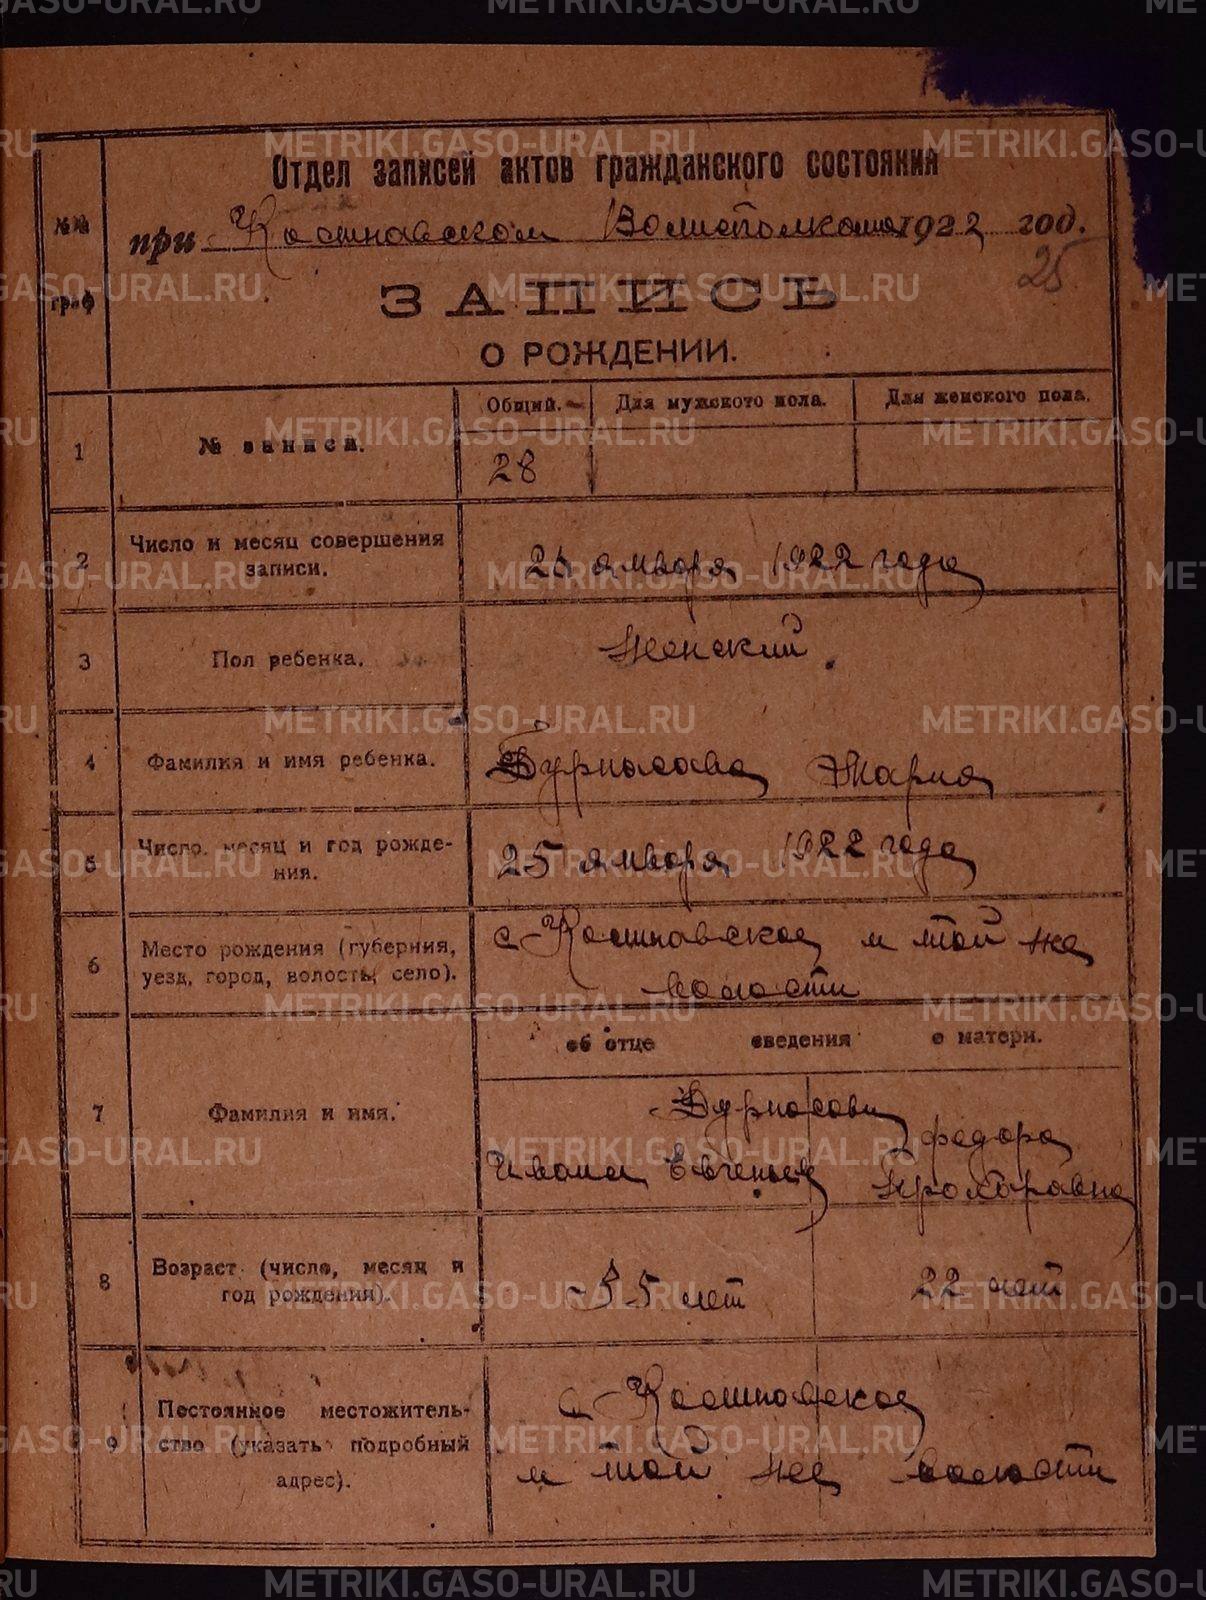 METRIKI.GASO-URAL.RU
Отдел записей актов гражданского состояния
при Волисполкома 1922 год.
25
№№ граф
ЗАПИСЬ
О РОЖДЕНИИ.
1
№ записи.
Общий.
Для мужского пола.
Для женского пола.
28
2
Число и месяц совершения
записи.
25 января 1922 года
3
Пол ребенка.
Женский
4
Фамилия и имя ребенка.
Бурносова Мария
5
Число, месяц и год рожде-
ния.
25 января 1922 года
6
Место рождения (губерния,
уезд, город, волость, село).
с. и той же
волости
7
Фамилия и имя.
об отце сведения о матери.
Бурносовы
Иван Евгеньев
Федора
8
Возраст (число, месяц и
год рождения).
35 лет
22 лет
9
Постоянное местожитель-
ство (указать подробный
адрес).
с.
и той же волости